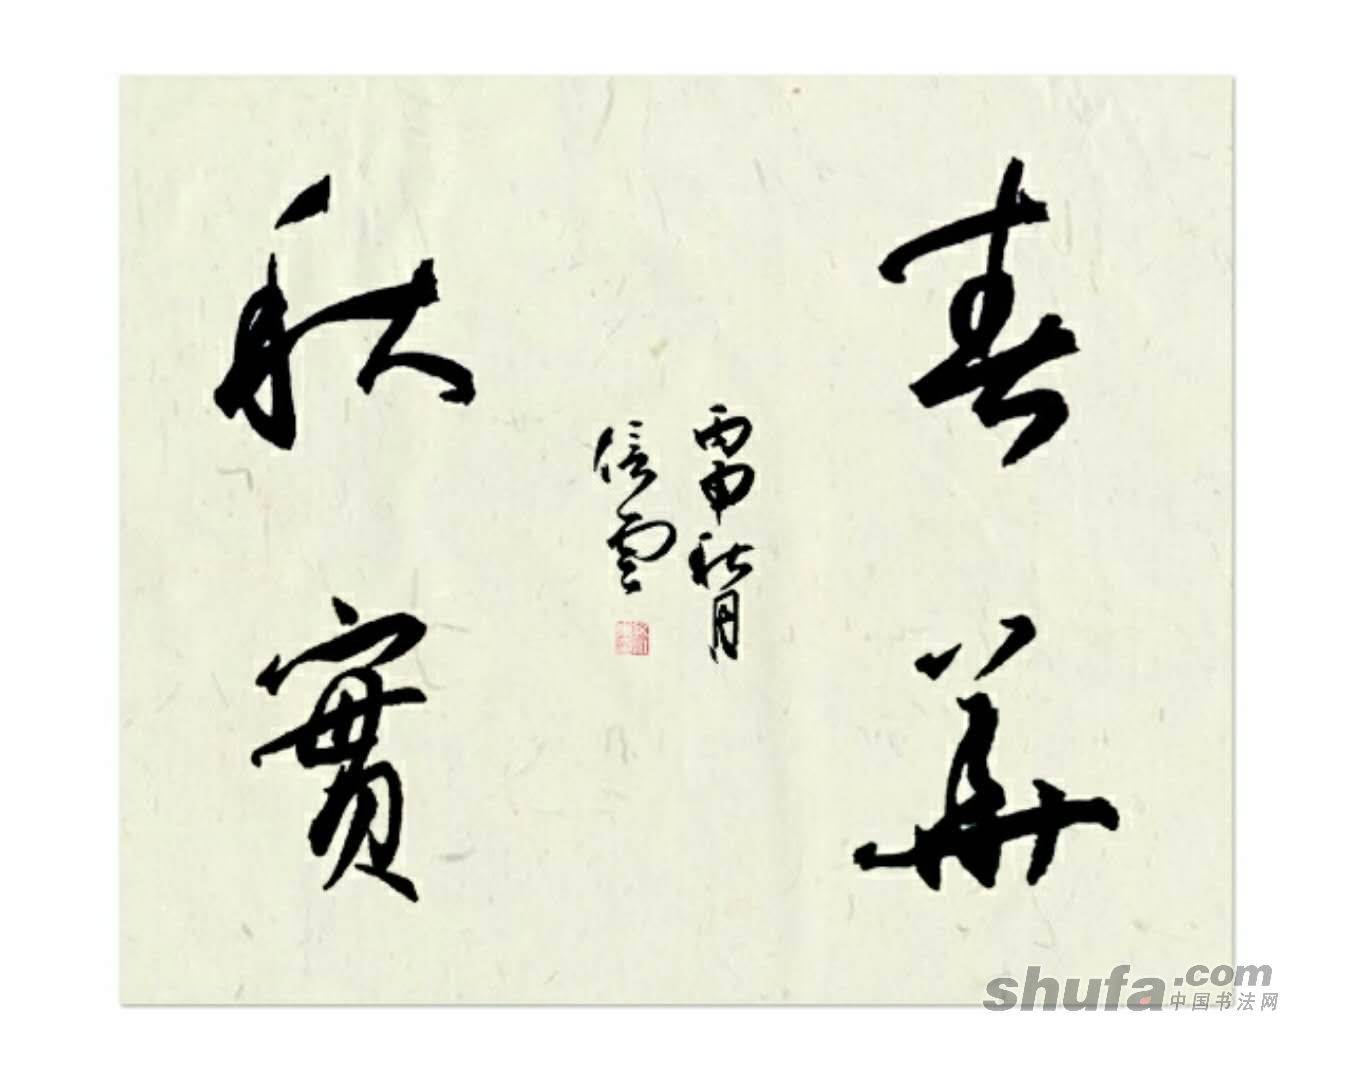 春華
秋實
丙申秋月
信雲
shufa.com
中国书法网